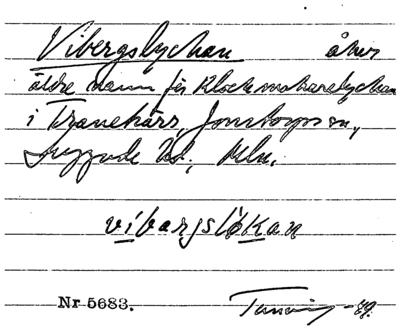 Vibergslyckan åker
äldre namn för Klockmakarelyckan
i Tranekärr, Jonstorps sn,
Luggude hd, Mlh.
vibargslökan
Nr 5683. -29.